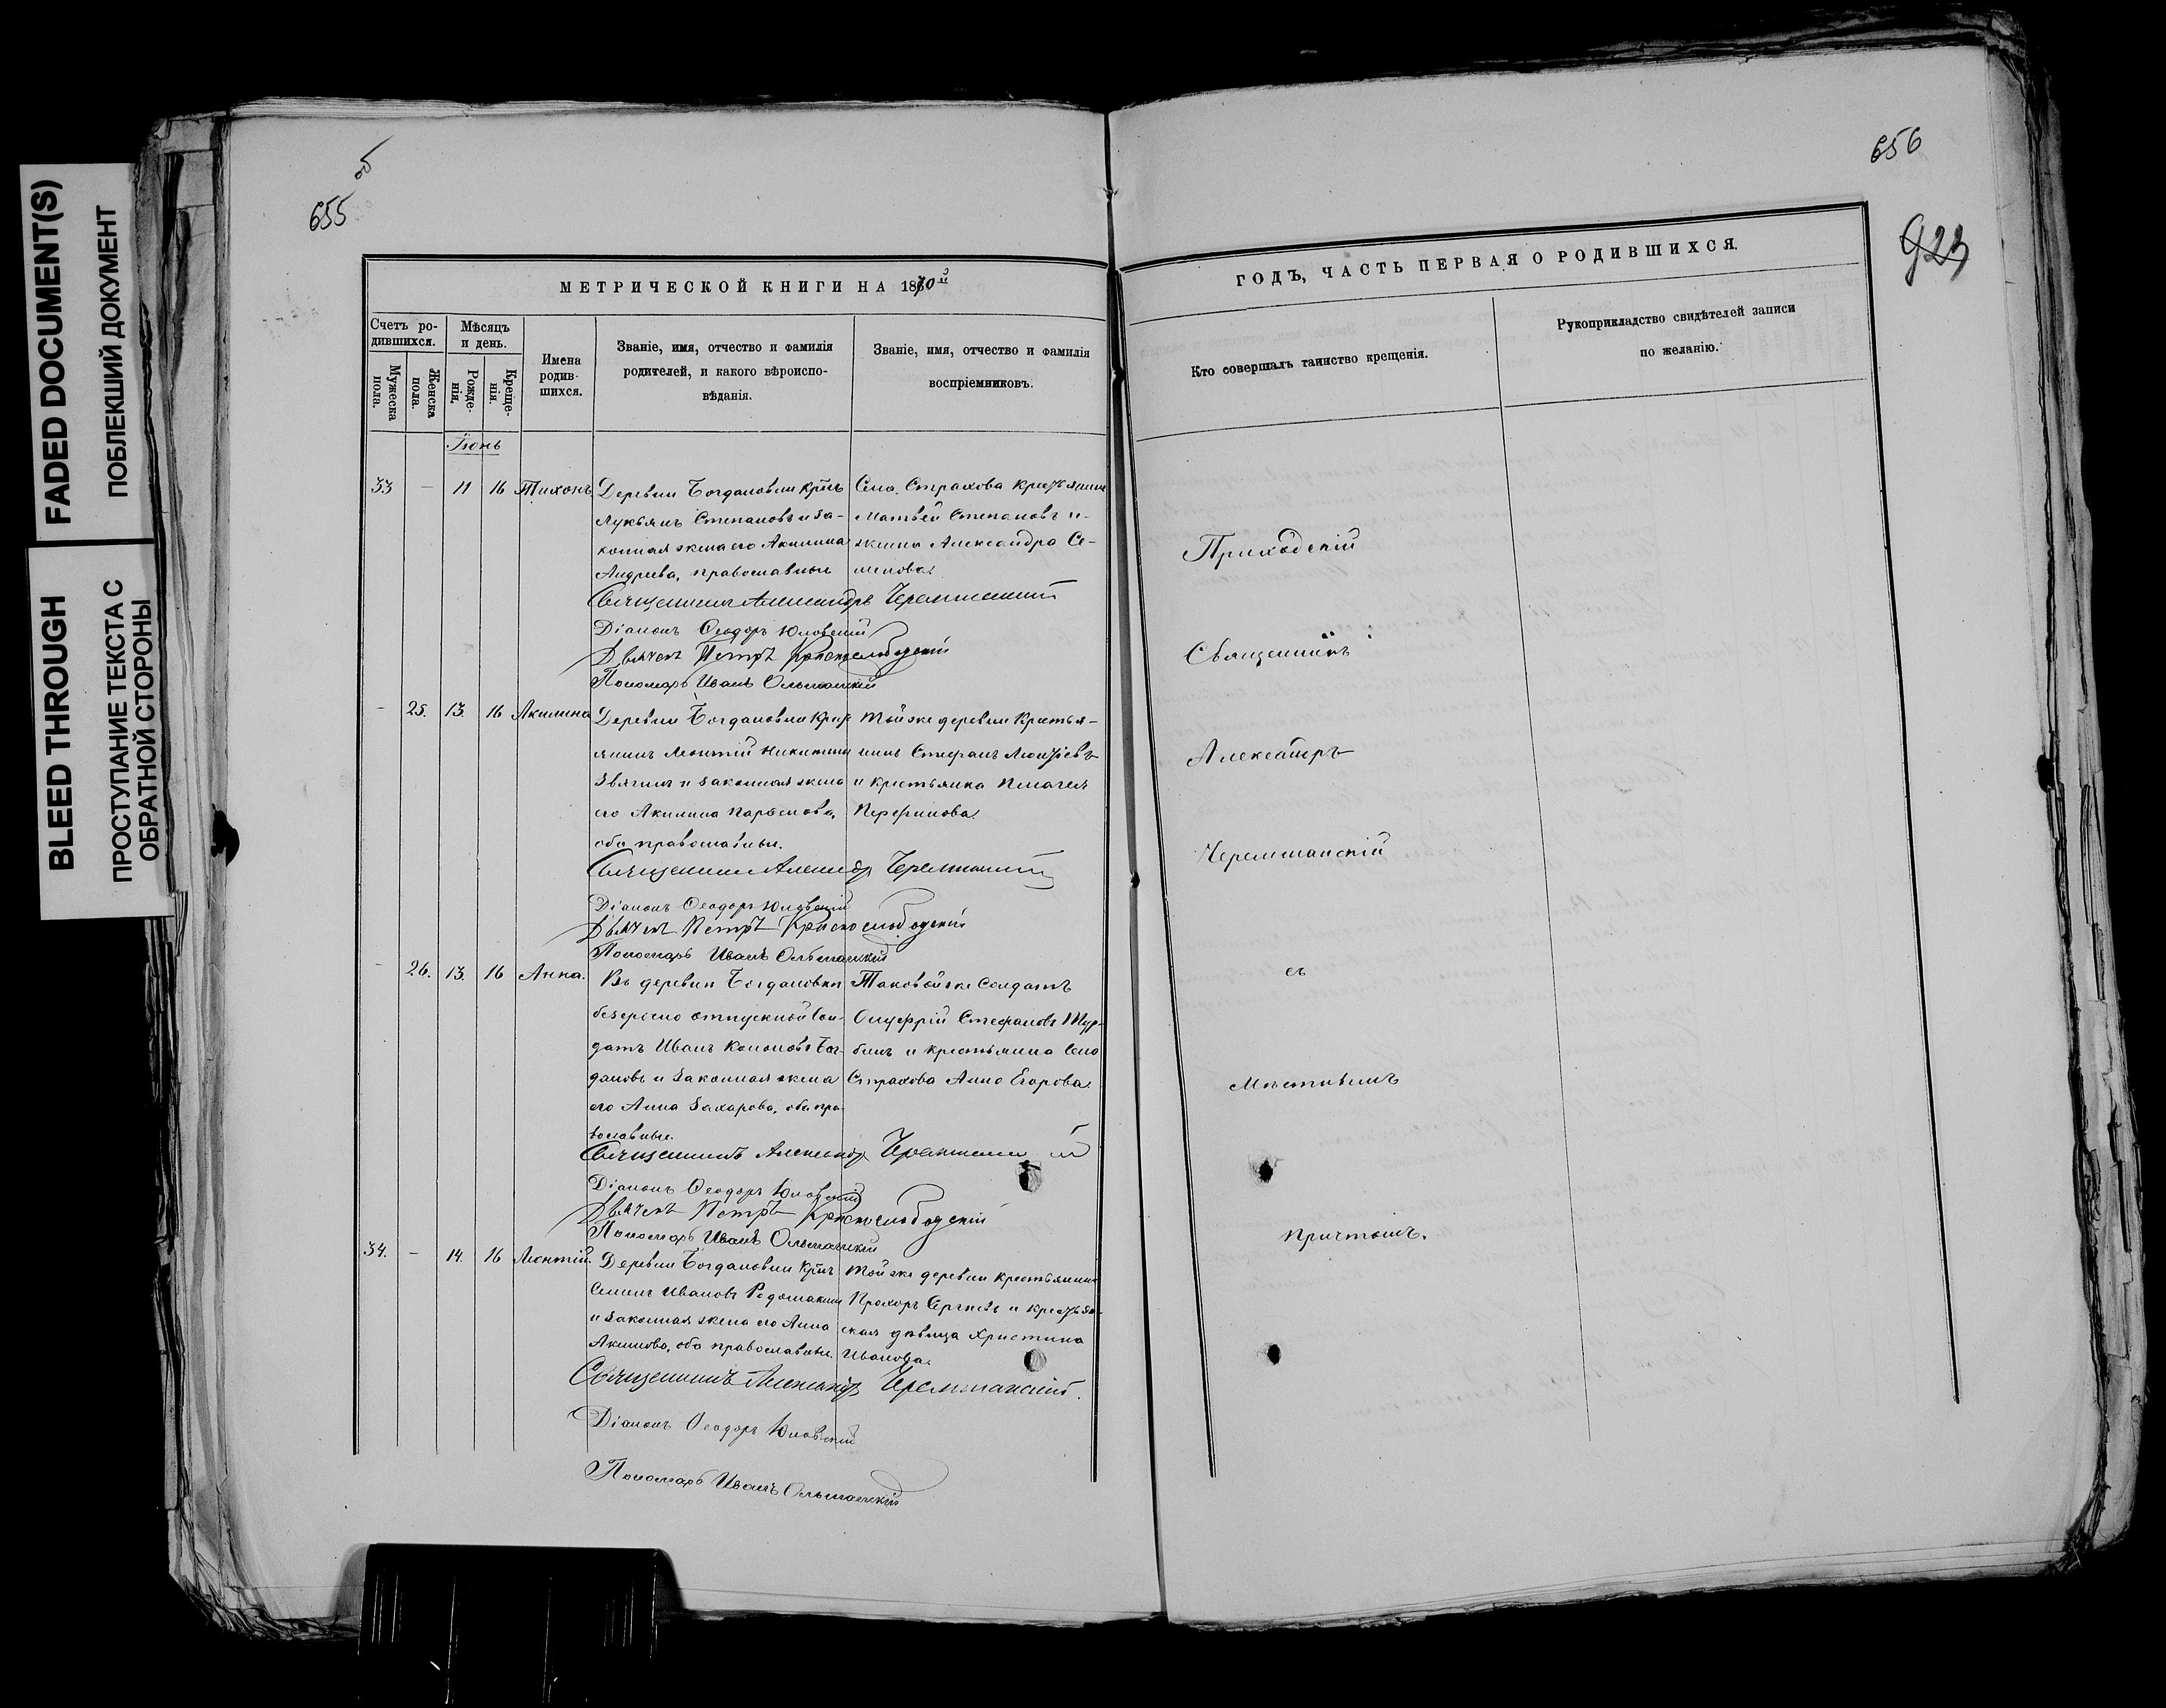 FADED DOCUMENT(S)
ПОБЛЕКШИЙ ДОКУМЕНТ
BLEED THROUGH
ПРОСТУПАНИЕ ТЕКСТА С
ОБРАТНОЙ СТОРОНЫ
об
655
МЕТРИЧЕСКОЙ КНИГИ НА 1870й
Счетъ ро-
дившихся.
Мужеска
пола.
Женска
пола.
Мѣсяцъ
и день.
Рожде-
нія.
Креще-
нія.
Имена
родив-
шихся.
Званіе, имя, отчество и фамилія
родителей, и какого вѣроиспо-
вѣданія.
Званіе, имя, отчество и фамилія
воспріемниковъ.
Іюнь
33 - 11 16 Тихонъ
Деревни Богдановки
Лукьянъ Степановъ и за-
конная жена его Акилина
Андреева, православные
Села Страхова
Матвей Степановъ и
жена Александра Се-
менова.
Священникъ Александръ Черемшанский
Діаконъ Ѳеодоръ Юловский
Дьячекъ Петръ Краснослободскій
Пономарь Иванъ Ольшанскій
- 25. 13. 16 Акилина
Деревни Богдановки Крест
янинъ Леонтій Никитинъ
Звягинъ и законная жена
его Акилина
оба православные.
Той же деревни Крестья-
нинъ Стефанъ
и крестьянка Пелагея
Перфилова.
Священникъ Александръ Черемшанский
Діаконъ Ѳеодоръ Юловскій
Дьячекъ Петръ Краснослободскій
Пономарь Иванъ Ольшанскій
- 26. 13. 16 Анна.
Въ деревни Богдановки
безсрочно отпускной Сол-
датъ Иванъ Кононовъ Бог-
дановъ и законная жена
его Анна Захарова, оба пра-
вославные.
Таковой же Солдатъ
Онуфрій Стефановъ
и крестьянка Села
Страхова Анна Егорова.
Священникъ Александръ Черемшанский
Діаконъ Ѳеодоръ Юловскій
Дьячекъ Петръ Краснослободскій
Пономарь Иванъ Ольшанскій
34. - 14. 16 Леонтій.
Деревни Богдановки
Иванов
и законная жена его Анна
Акимова, оба православные.
Той же деревни крестьянинъ
Прохоръ Сергѣевъ и крестьян-
ская дѣвица Христина
Иванова.
Священникъ Александръ Черемшанский.
Діаконъ Ѳеодоръ Юловскій
Пономарь Иванъ Ольшанскій
656
923
ГОДЪ, ЧАСТЬ ПЕРВАЯ О РОДИВШИХСЯ.
Кто совершалъ таинство крещенія.
Рукоприкладство свидѣтелей записи
по желанію.
Приходскій
Священникъ
Александръ
Черемшанскій
съ
Мѣстнымъ
причтомъ.